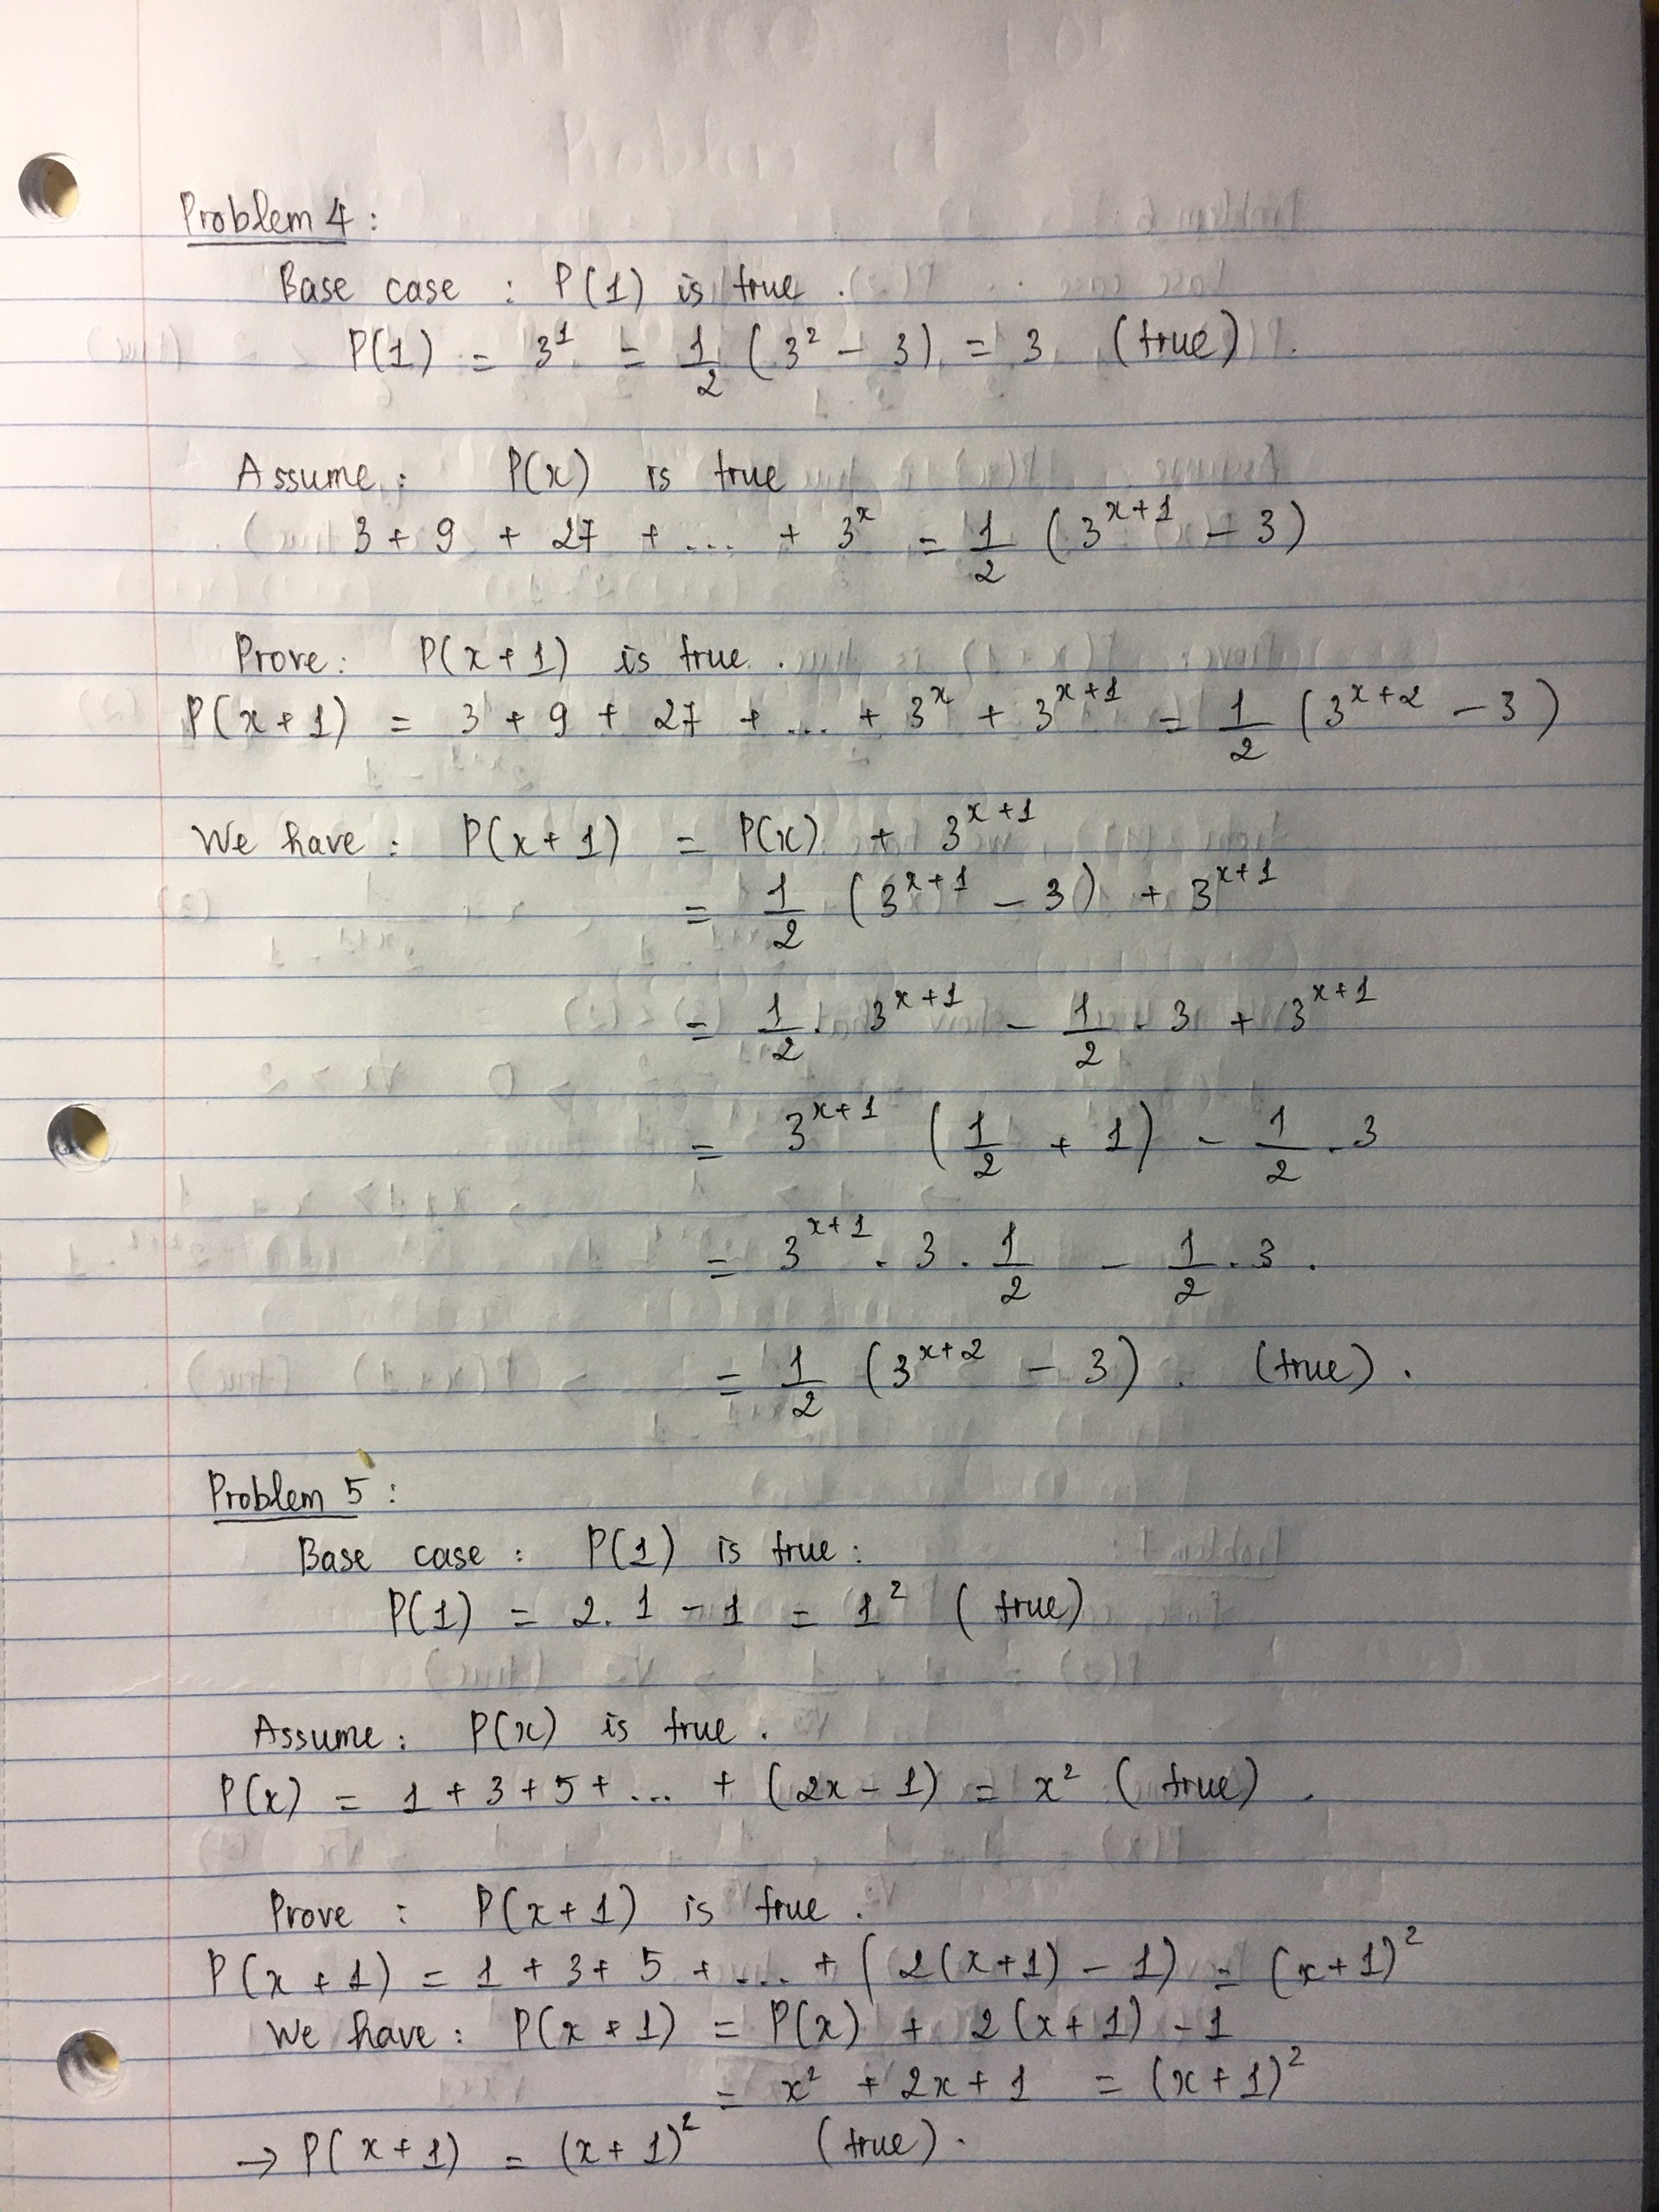 Problem 4 :
Base case : P(1) is true .
P(1) = 3¹ = 1/2 (3² - 3) = 3 (true) .
Assume : P(x) is true
3 + 9 + 27 + ... + 3^x = 1/2 (3^(x+1) - 3)
Prove : P(x+1) is true .
P(x+1) = 3 + 9 + 27 + ... + 3^x + 3^(x+1) = 1/2 (3^(x+2) - 3)
We have : P(x+1) = P(x) + 3^(x+1)
= 1/2 (3^(x+1) - 3) + 3^(x+1)
= 1/2 . 3^(x+1) - 1/2 . 3 + 3^(x+1)
= 3^(x+1) (1/2 + 1) - 1/2 . 3
= 3^(x+1) . 3 . 1/2 - 1/2 . 3 .
= 1/2 (3^(x+2) - 3) . (true) .
Problem 5 :
Base case : P(1) is true :
P(1) = 2.1 - 1 = 1² (true)
Assume : P(x) is true .
P(x) = 1 + 3 + 5 + ... + (2x - 1) = x² (true) .
Prove : P(x+1) is true .
P(x+1) = 1 + 3 + 5 + ... + (2(x+1) - 1) = (x+1)²
We have : P(x+1) = P(x) + 2(x+1) - 1
= x² + 2x + 1 = (x+1)²
→ P(x+1) = (x+1)² (true) .